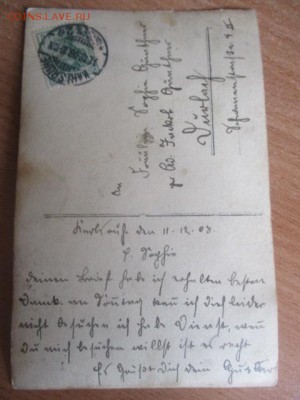 COINS.LAV.RU
KARLSRUHE
An
Fräulein Sophie Günther
pr Ad. Jackob Günther
Durlach
Karlsruhe den 11-12.03
l. Sophie
deinen Brief habe ich erhalten besten
Dank. am Sonntag kann ich dich leider
nicht besuchen ich habe Dienst, wenn
Du mich besuchen willst ist es recht
Es Grüßt dich dein Gustav